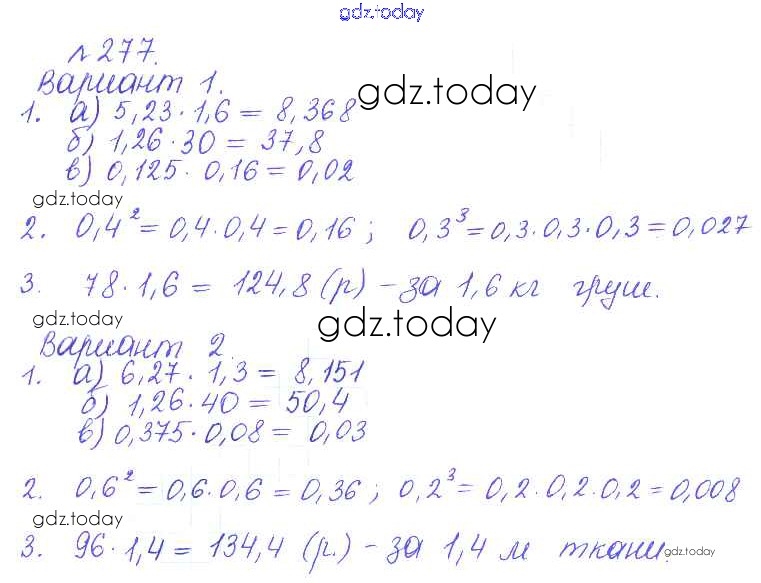 gdz.today
№277.
Вариант 1.
1. а) 5,23·1,6 = 8,368 gdz.today
б) 1,26·30 = 37,8
в) 0,125·0,16 = 0,02
gdz.today
2. 0,4² = 0,4·0,4 = 0,16; 0,3³ = 0,3·0,3·0,3 = 0,027
3. 78·1,6 = 124,8 (р) - за 1,6 кг груш.
gdz.today gdz.today
Вариант 2.
1. а) 6,27·1,3 = 8,151
б) 1,26·40 = 50,4
в) 0,375·0,08 = 0,03
2. 0,6² = 0,6·0,6 = 0,36; 0,2³ = 0,2·0,2·0,2 = 0,008
gdz.today
3. 96·1,4 = 134,4 (р.) - за 1,4 м ткани. gdz.today